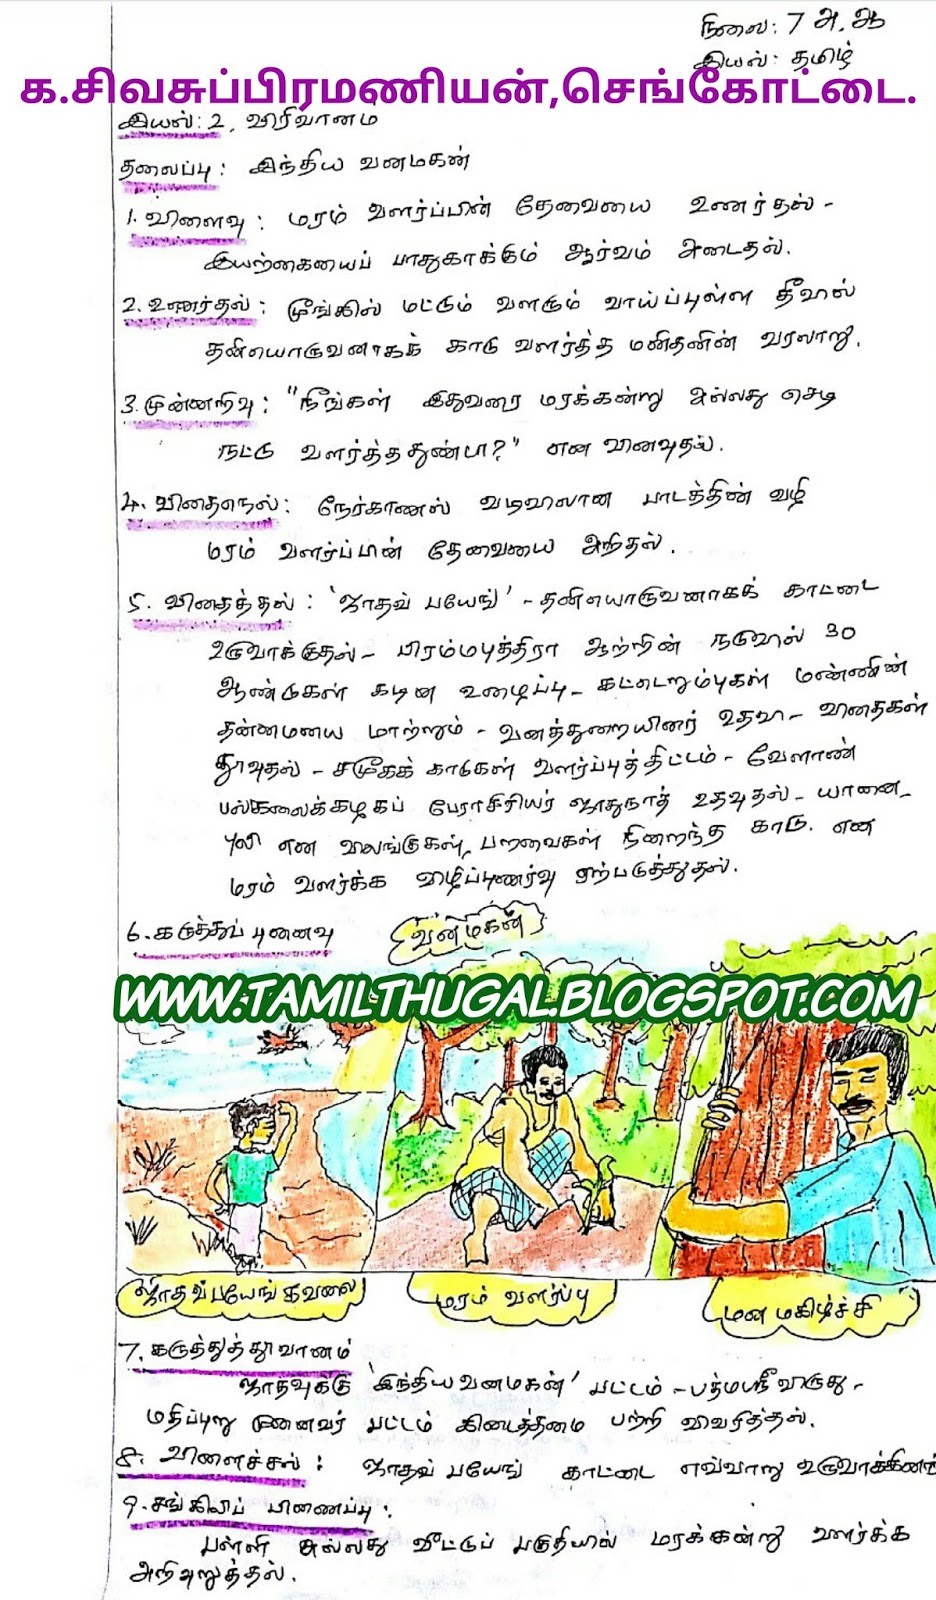 நிலை: 7 அ, ஆ
இயல்: தமிழ்
க.சிவசுப்பிரமணியன்,செங்கோட்டை.
இயல்: 2, விரிவானம்
தலைப்பு: இந்திய வனமகன்
1. விளைவு: மரம் வளர்ப்பின் தேவையை உணர்தல் -
இயற்கையைப் பாதுகாக்கும் ஆர்வம் அடைதல்.
2. உணர்தல்: மூங்கில் மட்டும் வளரும் வாய்ப்புள்ள தீவில்
தனியொருவனாகக் காடு வளர்த்த மனிதனின் வரலாறு.
3. முன்னறிவு: "நீங்கள் இதுவரை மரக்கன்று அல்லது செடி
நட்டு வளர்த்ததுண்டா?" என வினவுதல்.
4. விதைநெல்: நேர்காணல் வடிவிலான பாடத்தின் வழி
மரம் வளர்ப்பின் தேவையை அறிதல்.
5. விதைத்தல்: 'ஜாதவ் பயேங்' - தனியொருவனாகக் காட்டை
உருவாக்குதல் - பிரம்மபுத்திரா ஆற்றின் நடுவில் 30
ஆண்டுகள் கடின உழைப்பு - கட்டெறும்புகள் மண்ணின்
தன்மையை மாற்றும் - வனத்துறையினர் உதவி - விதைகள்
தூவுதல் - சமூகக் காடுகள் வளர்ப்புத் திட்டம் - வேளாண்
பல்கலைக்கழகப் பேராசிரியர் ஜாதுநாத் உதவுதல் - யானை -
புலி என விலங்குகள், பறவைகள் நிறைந்த காடு. என
மரம் வளர்க்க விழிப்புணர்வு ஏற்படுத்துதல்.
6. கருத்துப் புனைவு
வனமகன்
WWW.TAMILTHUGAL.BLOGSPOT.COM
ஜாதவ்பயேங் கவலை
மரம் வளர்ப்பு
மன மகிழ்ச்சி
7. கருத்துத்தூவானம்
ஜாதவுக்கு 'இந்திய வனமகன்' பட்டம் - பத்மஸ்ரீ விருது -
மதிப்புறு முனைவர் பட்டம் கிடைத்தமை பற்றி விவரித்தல்.
8. விளைச்சல்: ஜாதவ் பயேங் காட்டை எவ்வாறு
9. சங்கிலிப் பிணைப்பு:
பள்ளி அல்லது வீட்டுப் பகுதியில் மரக்கன்று வளர்க்க
அறிவுறுத்தல்.